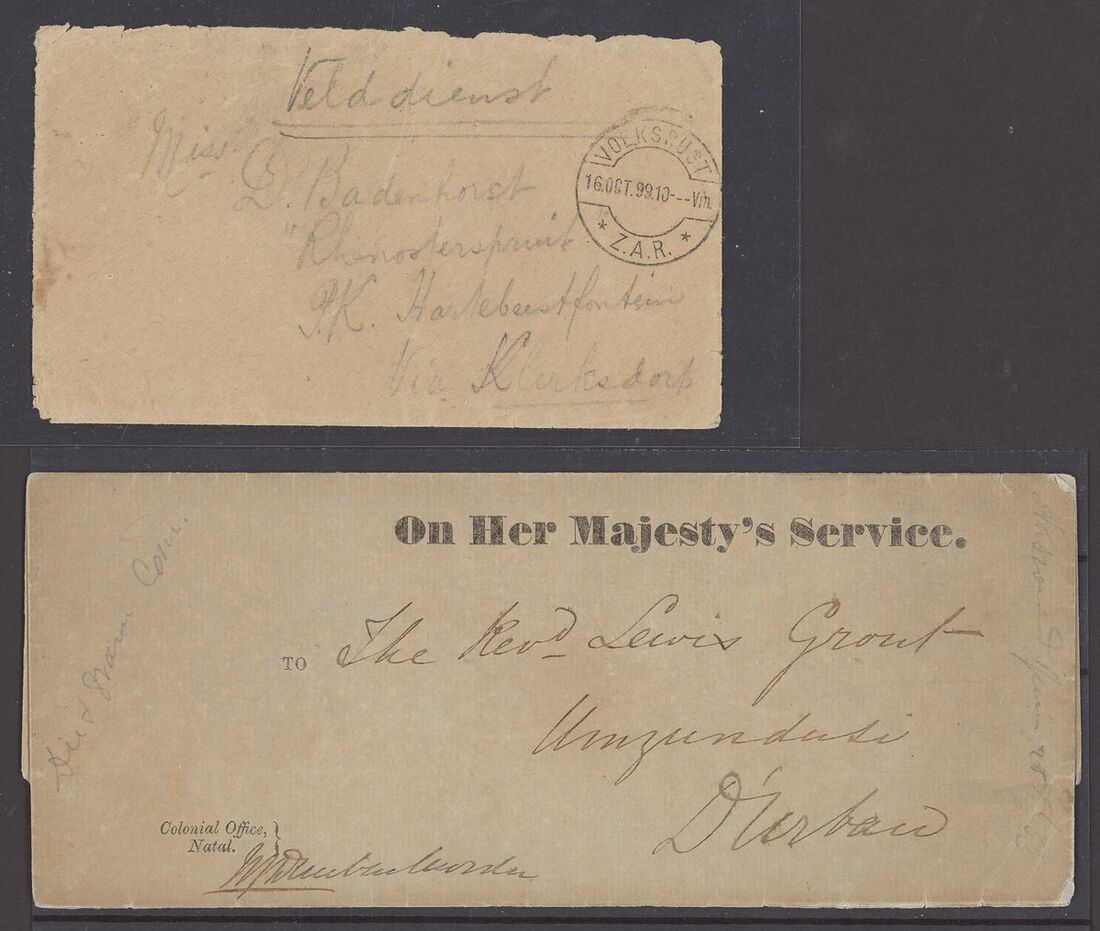 Velddienst
Miss.
D. Badenhorst
"Rhenosterspruit
P.K. Hartebeestfontein
Via Klerksdorp
VOLKSRUST
16.OCT.99.10---V/m.
* Z.A.R. *
On Her Majesty's Service.
TO The Revd Lewis Grout
Umzunduzi
D'Urban
Colonial Office,
Natal.
Com.